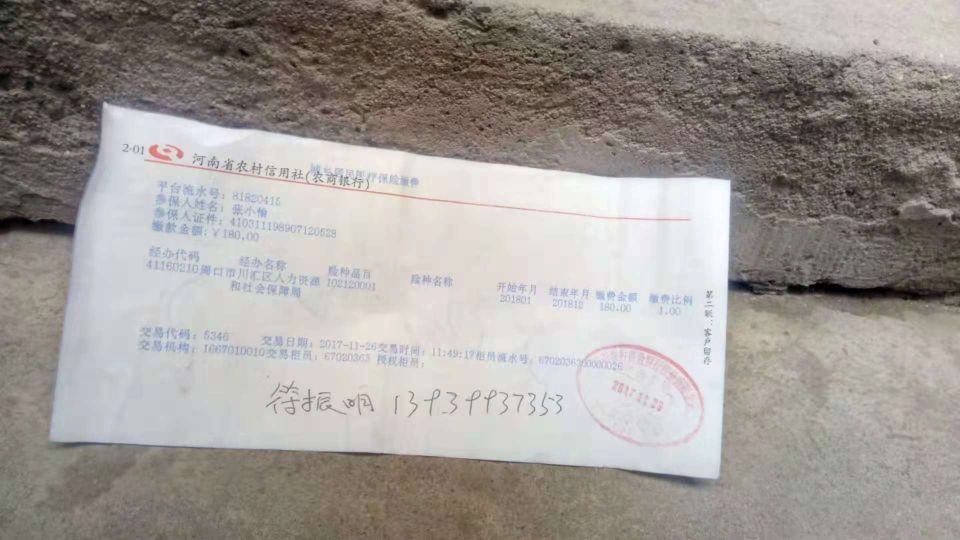 2-01 河南省农村信用社(农商银行)
城乡居民医疗保险缴费
平台流水号：81820415
参保人姓名：张小愉
参保人证件：410311198907120528
缴款金额：￥180.00
经办代码 经办名称 险种品目 险种名称 开始年月 结束年月 缴费金额 缴费比例
41160210 周口市川汇区人力资源 102120001 201801 201812 180.00 1.00
和社会保障局
交易代码：5346 交易日期：2017-11-26 交易时间：11:49:17 柜员流水号：6702036300000026
交易机构：1667010010 交易柜员：67020363 授权柜员：
振明 13939937353
第二联：客户留存